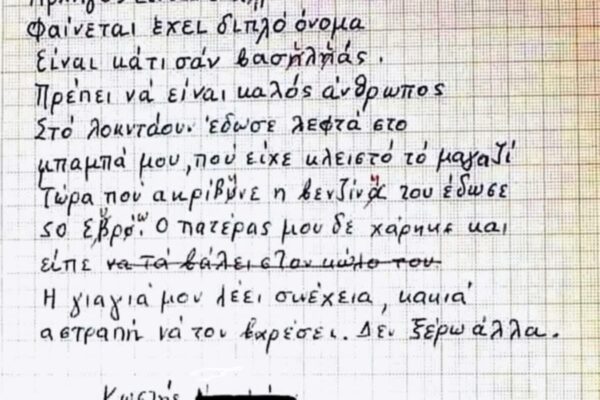 φαίνεται έχει διπλό όνομα
Είναι κάτι σάν βασηληάς.
Πρέπει νά είναι καλός άνθρωπος
Στό λοκντάουν έδωσε λεφτά στο
μπαμπά μου, πού είχε κλειστό τό μαγαζί
Τώρα πού ακρίβυνε η βενζίνα του έδωσε
50 εβρό. Ο πατέρας μου δε χάρηκε και
είπε να τα βάλει στον κώλο του.
Η γιαγιά μου λέει συνέχεια, κακιά
αστραπή νά τον βαρέσει. Δεν ξέρω άλλα.
Κωστής